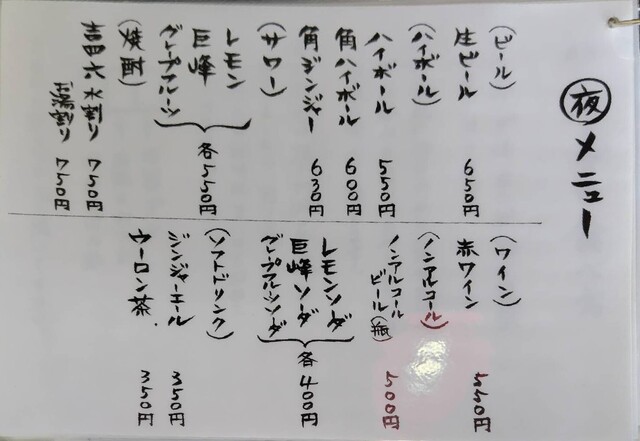 夜メニュー
(ビール)
生ビール 650円
(ハイボール)
ハイボール 550円
角ハイボール 600円
角ジンジャー 630円
(サワー)
レモン
巨峰
グレープフルーツ
各550円
(焼酎)
吉四六水割り 750円
お湯割り 750円
(ワイン)
赤ワイン 550円
(ノンアルコール)
ノンアルコール
ビール(瓶) 500円
レモンソーダ
巨峰ソーダ
グレープフルーツソーダ
各400円
(ソフトドリンク)
ジンジャーエール 350円
ウーロン茶. 350円